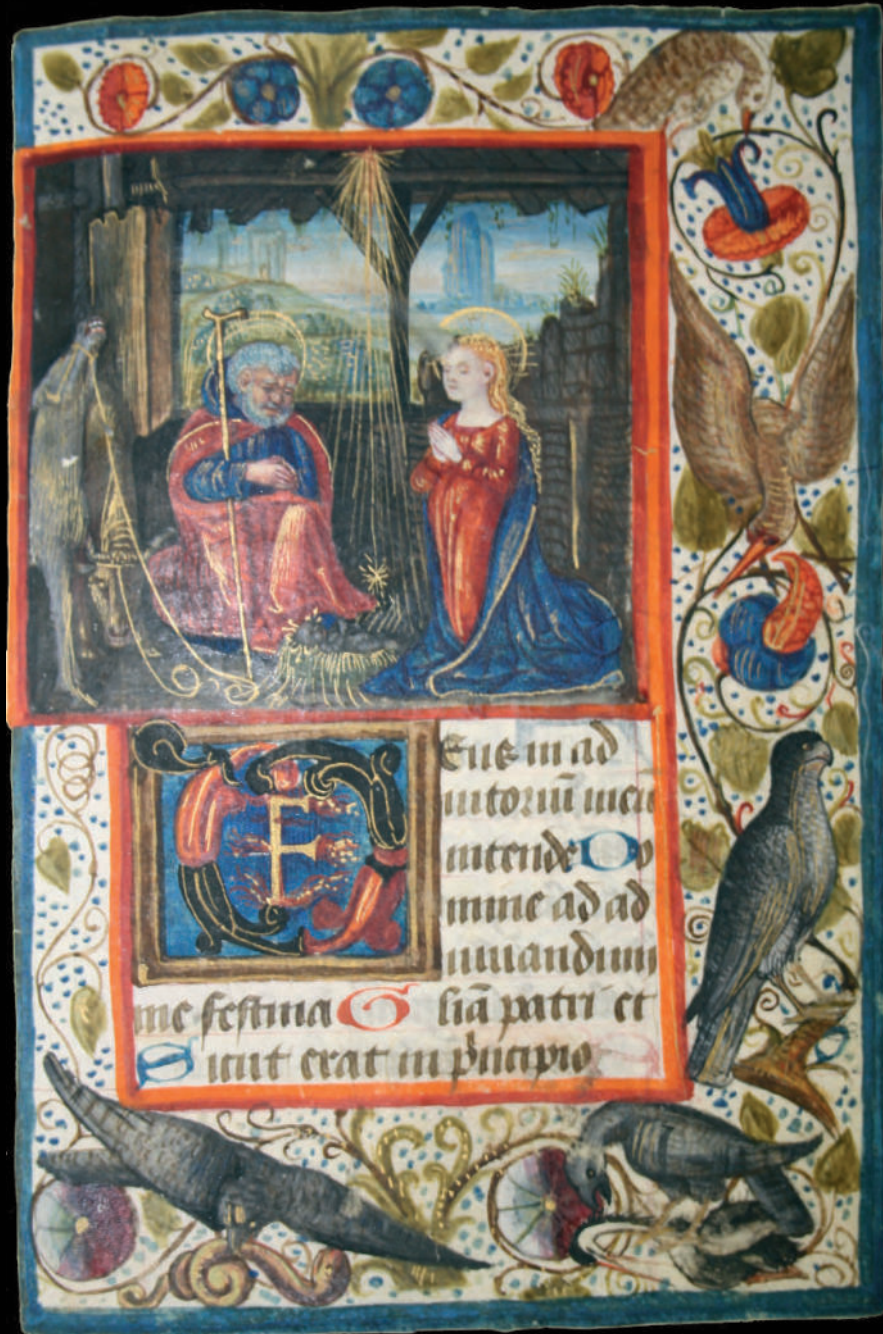 F
DEus in ad
iutoriū meū
intende Do
mine ad ad
iuuandum
me festina Gliā patri et
Sicut erat in p̄ncipio